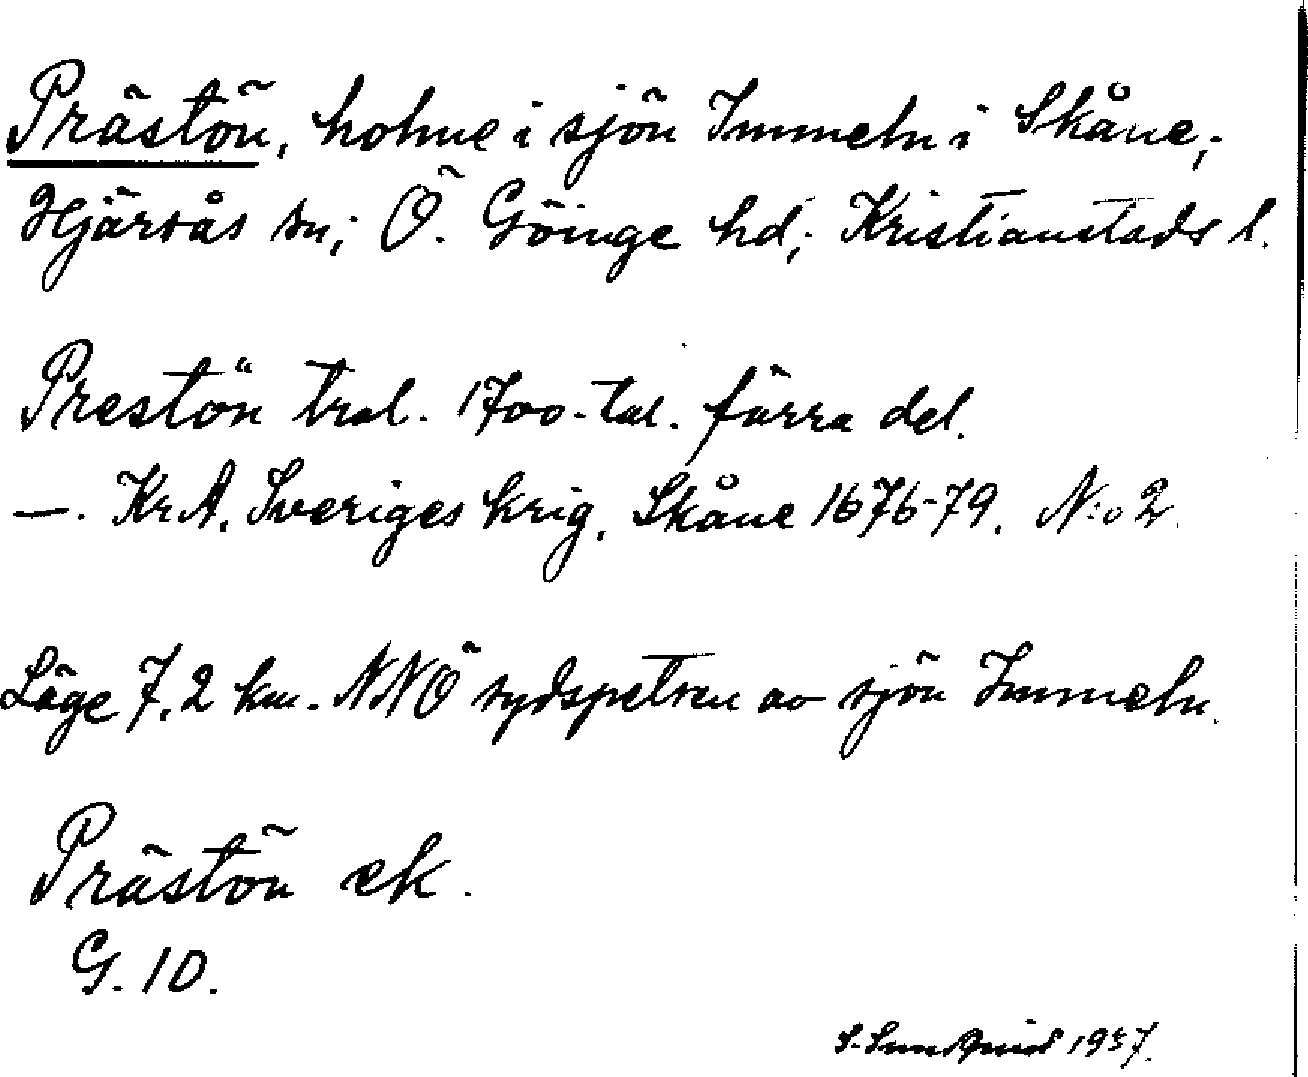 Prästön, holme i sjön Immeln i Skåne,;
Hjärsås sn; Ö. Göinge hd; Kristianstads l.
Prestön trol. 1700-tal. förra del.
—. KrA. Sveriges krig. Skåne 1676-79. N:o 2.
Läge 7,2 km. NNÖ sydspetsen av sjön Immeln.
Prästön ek.
G. 10.
S. Sundquist 1937.